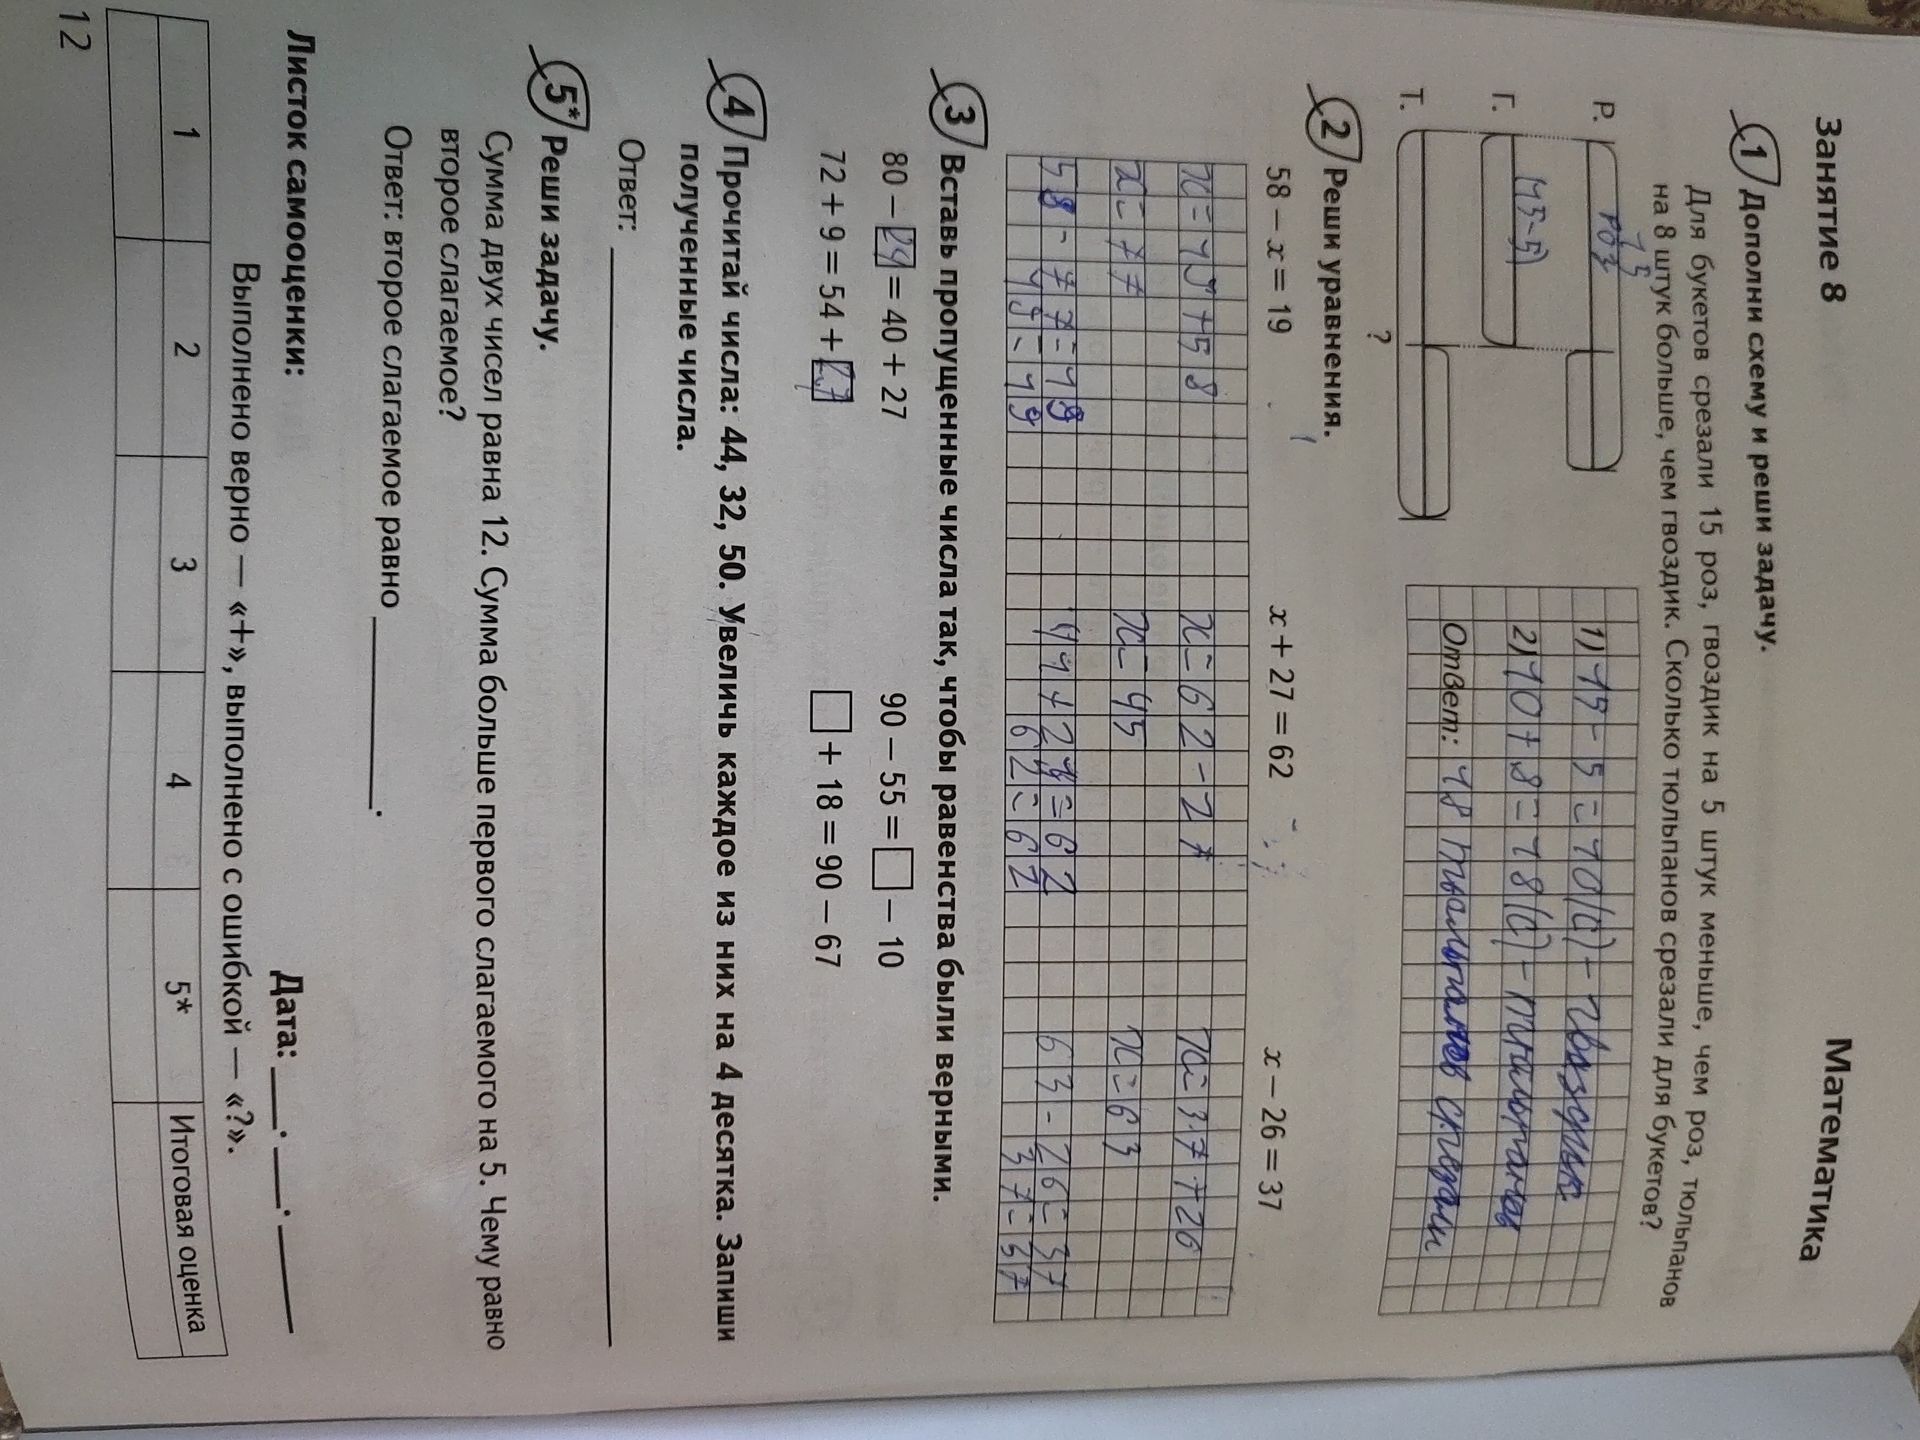 Занятие 8
Математика
1 Дополни схему и реши задачу.
Для букетов срезали 15 роз, гвоздик на 5 штук меньше, чем роз, тюльпанов
на 8 штук больше, чем гвоздик. Сколько тюльпанов срезали для букетов?
Р.
15
роз
Г.
Т.
?
1) 15 - 5 = 10 (с) - гвоздик
2) 10 + 8 = 18 (с) -
Ответ: 18 срезали
2 Реши уравнения.
58 – x = 19
x + 27 = 62
x – 26 = 37
x = 19 + 58
x = 62 - 27
x = 37 + 26
x = 77
x = 45
x = 63
58 - 77 = 19
= 62
63 - 26 = 37
19 = 19
62 = 62
37 = 37
3 Вставь пропущенные числа так, чтобы равенства были верными.
80 – = 40 + 27
90 – 55 = □ – 10
72 + 9 = 54 + 27
□ + 18 = 90 – 67
4 Прочитай числа: 44, 32, 50. Увеличь каждое из них на 4 десятка. Запиши
полученные числа.
Ответ:
5* Реши задачу.
Сумма двух чисел равна 12. Сумма больше первого слагаемого на 5. Чему равно
второе слагаемое?
Ответ: второе слагаемое равно .
Листок самооценки:
Дата: . .
Выполнено верно — «+», выполнено с ошибкой — «?».
1 2 3 4 5* Итоговая оценка
12